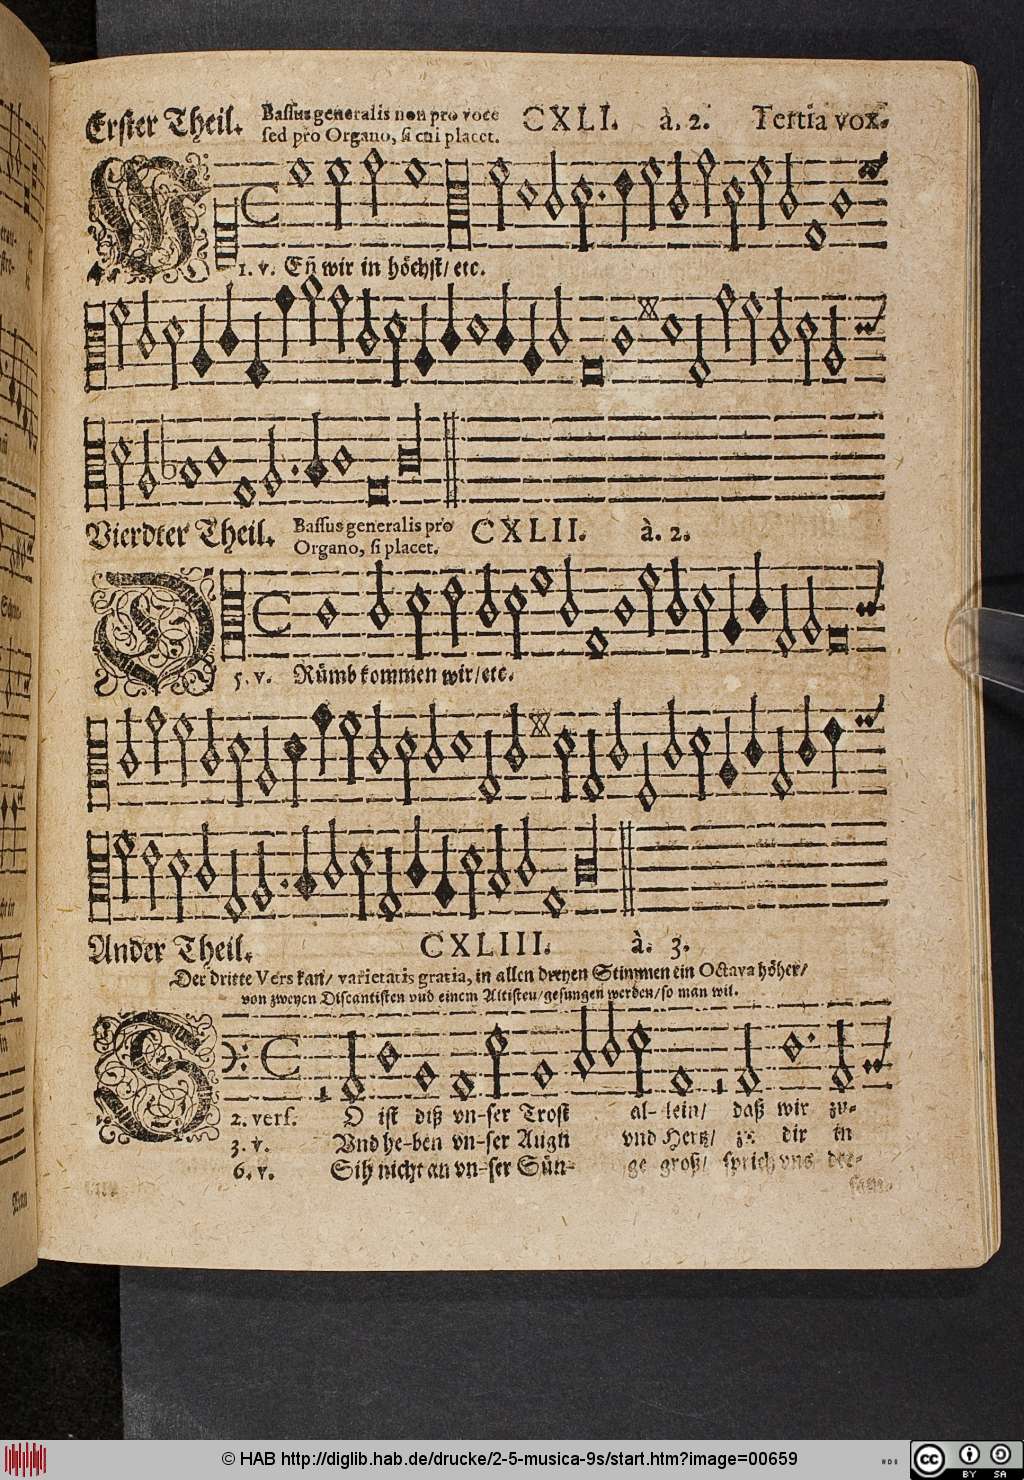 Erster Theil. Bassus generalis non pro voce CXLI. à. 2. Tertia vox.
sed pro Organo, si cui placet.
W
1. v. Eñ wir in höchst/ etc.
Vierdter Theil. Bassus generalis pro CXLII. à. 2.
Organo, si placet.
D
5. v. Rümb kommen wir/ etc.
Ander Theil. CXLIII. à. 3.
Der dritte Vers kan/ varietatis gratia, in allen dreyen Stimmen ein Octava höher/
von zweyen Discantisten vnd einem Altisten/ gesungen werden/ so man wil.
S
2. vers. O ist diß vn-ser Trost al-lein/ daß wir zu-
3. v. Vnd he-ben vn-ser Augn vnd Hertz/ zu dir in
6. v. Sih nicht an vn-ser Sün- ge groß/ sprich vns der-
© HAB http://diglib.hab.de/drucke/2-5-musica-9s/start.htm?image=00659
cc BY SA